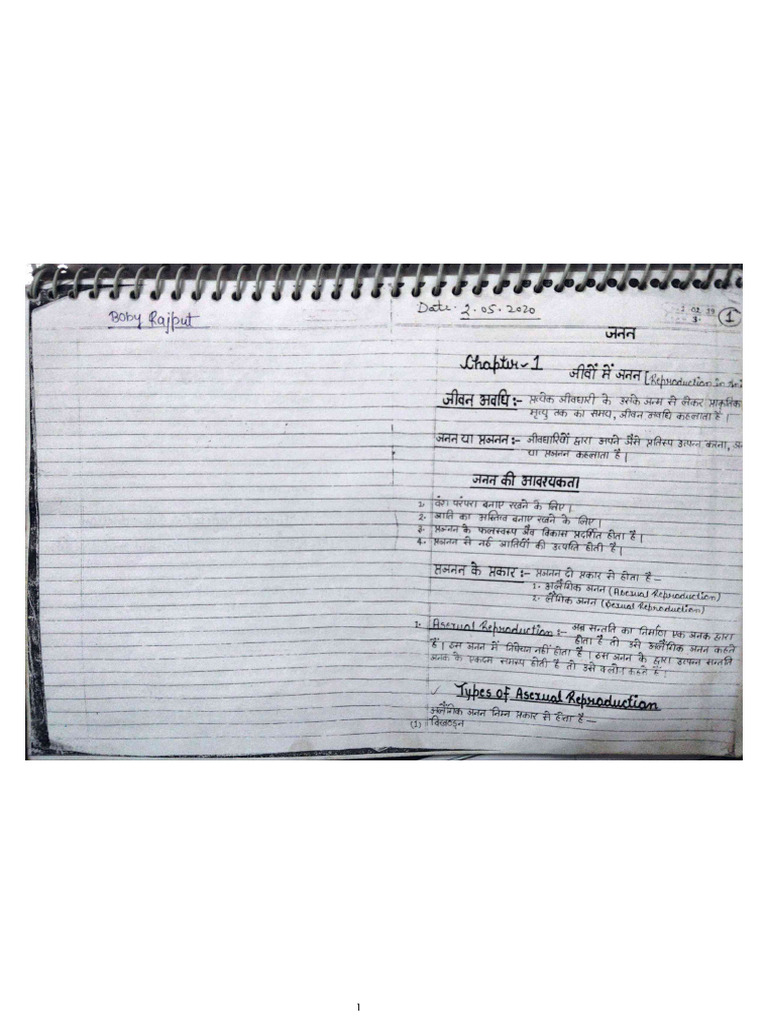 Boby Rajput
Date. 2.05.2020
1
जनन
Chapter-1 जीवों में जनन [Reproduction in
जीवन अवधि :- प्रत्येक जीवधारी के उसके जन्म से लेकर प्राकृतिक
मृत्यु तक का समय, जीवन अवधि कहलाता है।
जनन या प्रजनन :- जीवधारियों द्वारा अपने जैसे प्रतिरूप उत्पन्न करना,
या प्रजनन कहलाता है।
जनन की आवश्यकता
1. वंश परंपरा बनाए रखने के लिए।
2. जाति का अस्तित्व बनाए रखने के लिए।
3. प्रजनन के फलस्वरूप जैव विकास प्रदर्शित होता है।
4. प्रजनन से नई जातियों की उत्पत्ति होती है।
प्रजनन के प्रकार :- प्रजनन दो प्रकार से होता है —
1. अलैंगिक जनन (Asexual Reproduction)
2. लैंगिक जनन (Sexual Reproduction)
1. Asexual Reproduction :- जब सन्तति का निर्माण एक जनक द्वारा
होता है तो उसे अलैंगिक जनन कहते
हैं। इस जनन में निषेचन नहीं होता है। इस जनन के द्वारा उत्पन्न सन्तति
जनक के एकदम समरूप होती है तो उसे क्लोन कहते हैं।
✓ Types of Asexual Reproduction
अलैंगिक जनन निम्न प्रकार से होता है —
(1) विखण्डन
1